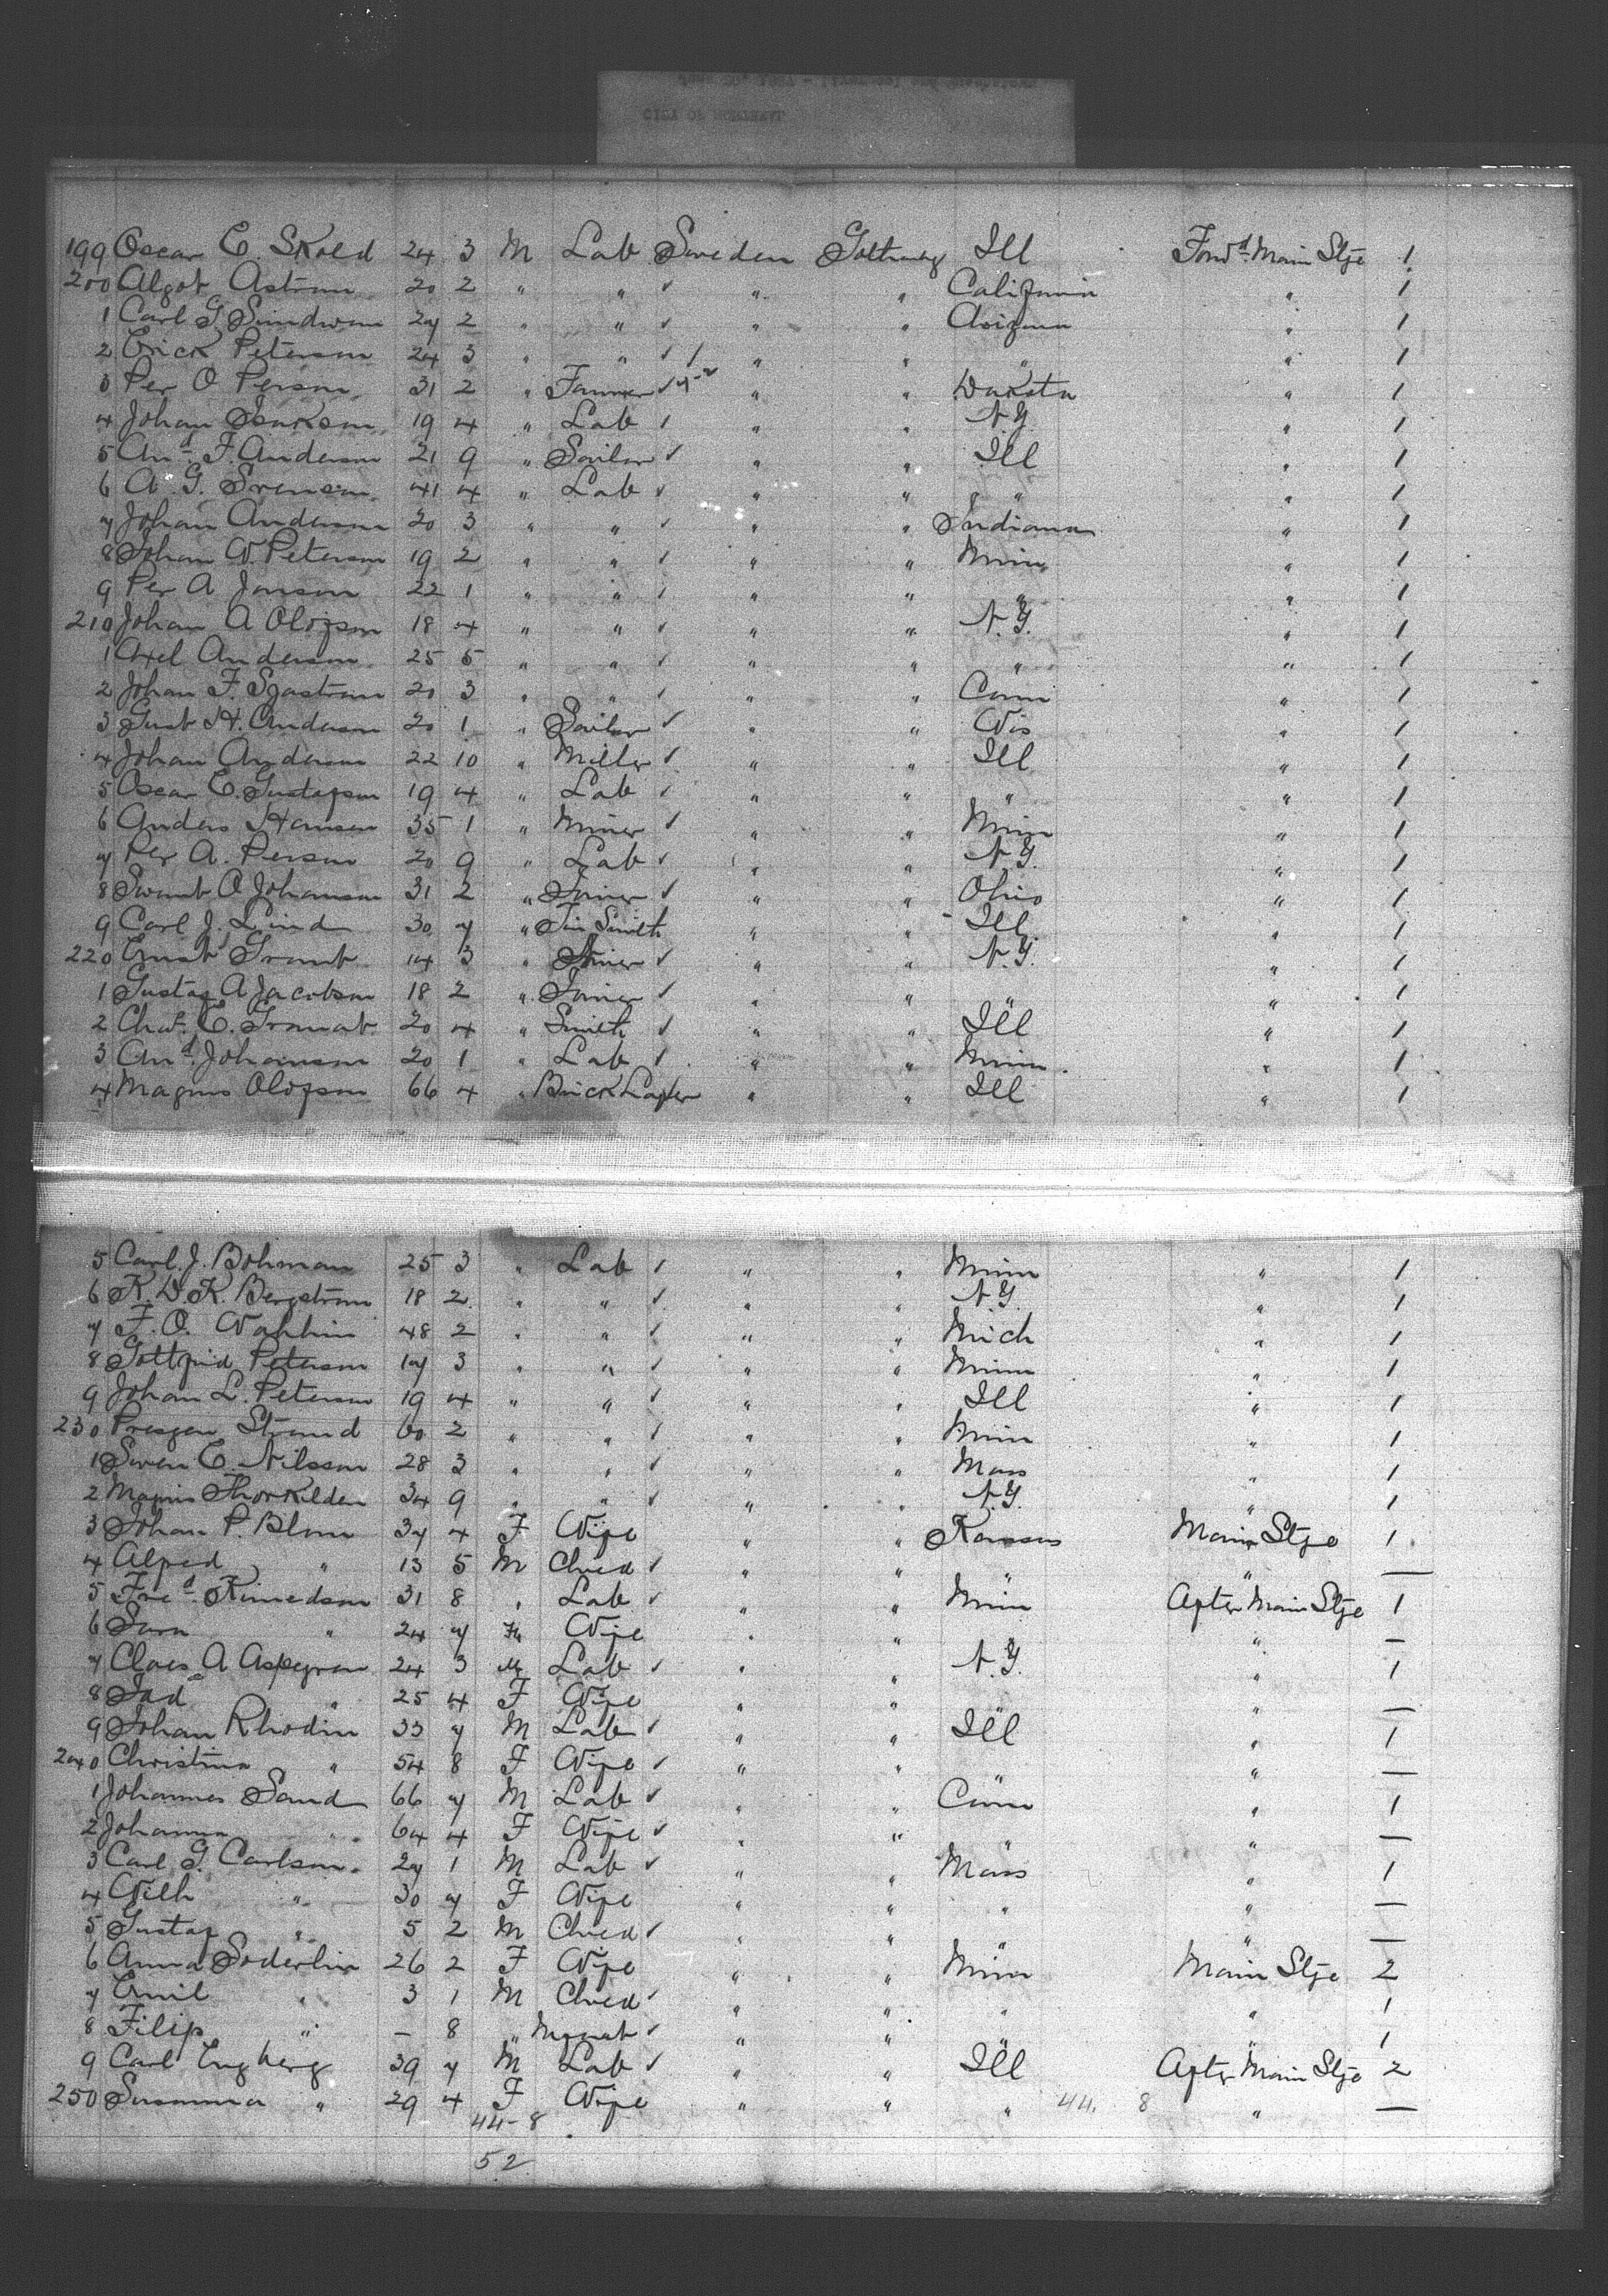 199 Oscar E. Skold 24 3 M Lab Sweden Gothnbg Ill Forwd Main Stge 1
200 Algot Astrom 20 2 " " ✓ " " California " 1
1 Carl G 27 2 " " ✓ " " Arizona " 1
2 Erick Peterson 24 3 " " ✓ " " " " 1
3 Per O Person 31 2 " Farmer ✓ " " Dakota " 1
4 Johan 19 4 " Lab ✓ " " N.Y. " 1
5 And F. Anderson 21 9 " Sailor ✓ " " Ill " 1
6 A. G. Svenson 41 4 " Lab ✓ " " " " 1
7 Johan Anderson 20 3 " " ✓ " " Indiana " 1
8 Johan W. Peterson 19 2 " " ✓ " " Minn " 1
9 Per A Jonson 22 1 " " ✓ " " " " 1
210 Johan A Olofson 18 4 " " ✓ " " N.Y. " 1
1 Axel Anderson 25 5 " " ✓ " " " " 1
2 Johan F. Sjastrom 20 3 " " ✓ " " Conn " 1
3 Gust H. Anderson 20 1 " Sailor ✓ " " Wis " 1
4 Johan Anderson 22 10 " Miller ✓ " " Ill " 1
5 Oscar E. Gustafson 19 4 " Lab ✓ " " " " 1
6 Anders Hansen 35 1 " Miner ✓ " " Minn " 1
7 Per A. Person 20 9 " Lab ✓ " " N.Y. " 1
8 Swant A Johanson 31 2 " Joiner ✓ " " Ohio " 1
9 Carl J. Lind 30 7 " Tin Smith " " Ill " 1
220 Ernst 14 3 " ✓ " " N.Y. " 1
1 Gustaf A Jacobson 18 2 " Joiner ✓ " " " " 1
2 Chas. E. 20 4 " Smith ✓ " " Ill " 1
3 And Johanson 20 1 " Lab ✓ " " Minn " 1
4 Magnus Olofson 66 4 " Brick Layer " " Ill " 1
5 Carl J. Bohman 25 3 " Lab ✓ " " Minn " 1
6 K. D. K. Bergstrom 18 2 " " ✓ " " N.Y. " 1
7 F. O. Wahlin 48 2 " " ✓ " " Mich " 1
8 Gottfrid Peterson 17 3 " " ✓ " " Minn " 1
9 Johan L. Peterson 19 4 " " ✓ " " Ill " 1
230 Strand 60 2 " " ✓ " " Minn " 1
1 Swen E. Nilsson 28 3 " " ✓ " " Mass " 1
2 Magnus Thorkilden 34 9 " " ✓ " " N.Y. " 1
3 Johan P. Blom 37 4 F Wife " " Kansas Main Stge 1
4 Alfred " 13 5 M Child ✓ " " " " —
5 Fred 31 8 " Lab ✓ " " Minn After Main Stge 1
6 Sara " 24 7 F Wife " " " " —
7 Claes A Aspegran 24 3 M Lab ✓ " " N.Y. " 1
8 " 25 4 F Wife " " " " —
9 Johan Rhodin 33 7 M Lab ✓ " " Ill " 1
240 Christina " 54 8 F Wife ✓ " " " " —
1 Johannes Sand 66 7 M Lab ✓ " " Conn " 1
2 Johanna " 64 4 F Wife ✓ " " " " —
3 Carl G. Carlson 27 1 M Lab ✓ " " Mass " 1
4 Wilh " 30 7 F Wife " " " " —
5 Gustaf " 5 2 M Child ✓ " " " " —
6 Anna Soderlin 26 2 F Wife " " Minn Main Stge 2
7 Emil " 3 1 M Child ✓ " " " " 1
8 Filip " — 8 " ✓ " " " " 1
9 Carl Engberg 39 7 M Lab ✓ " " Ill After Main Stge 2
250 Susanna " 29 4 F Wife " " " 44. 8 " —
44-8
52